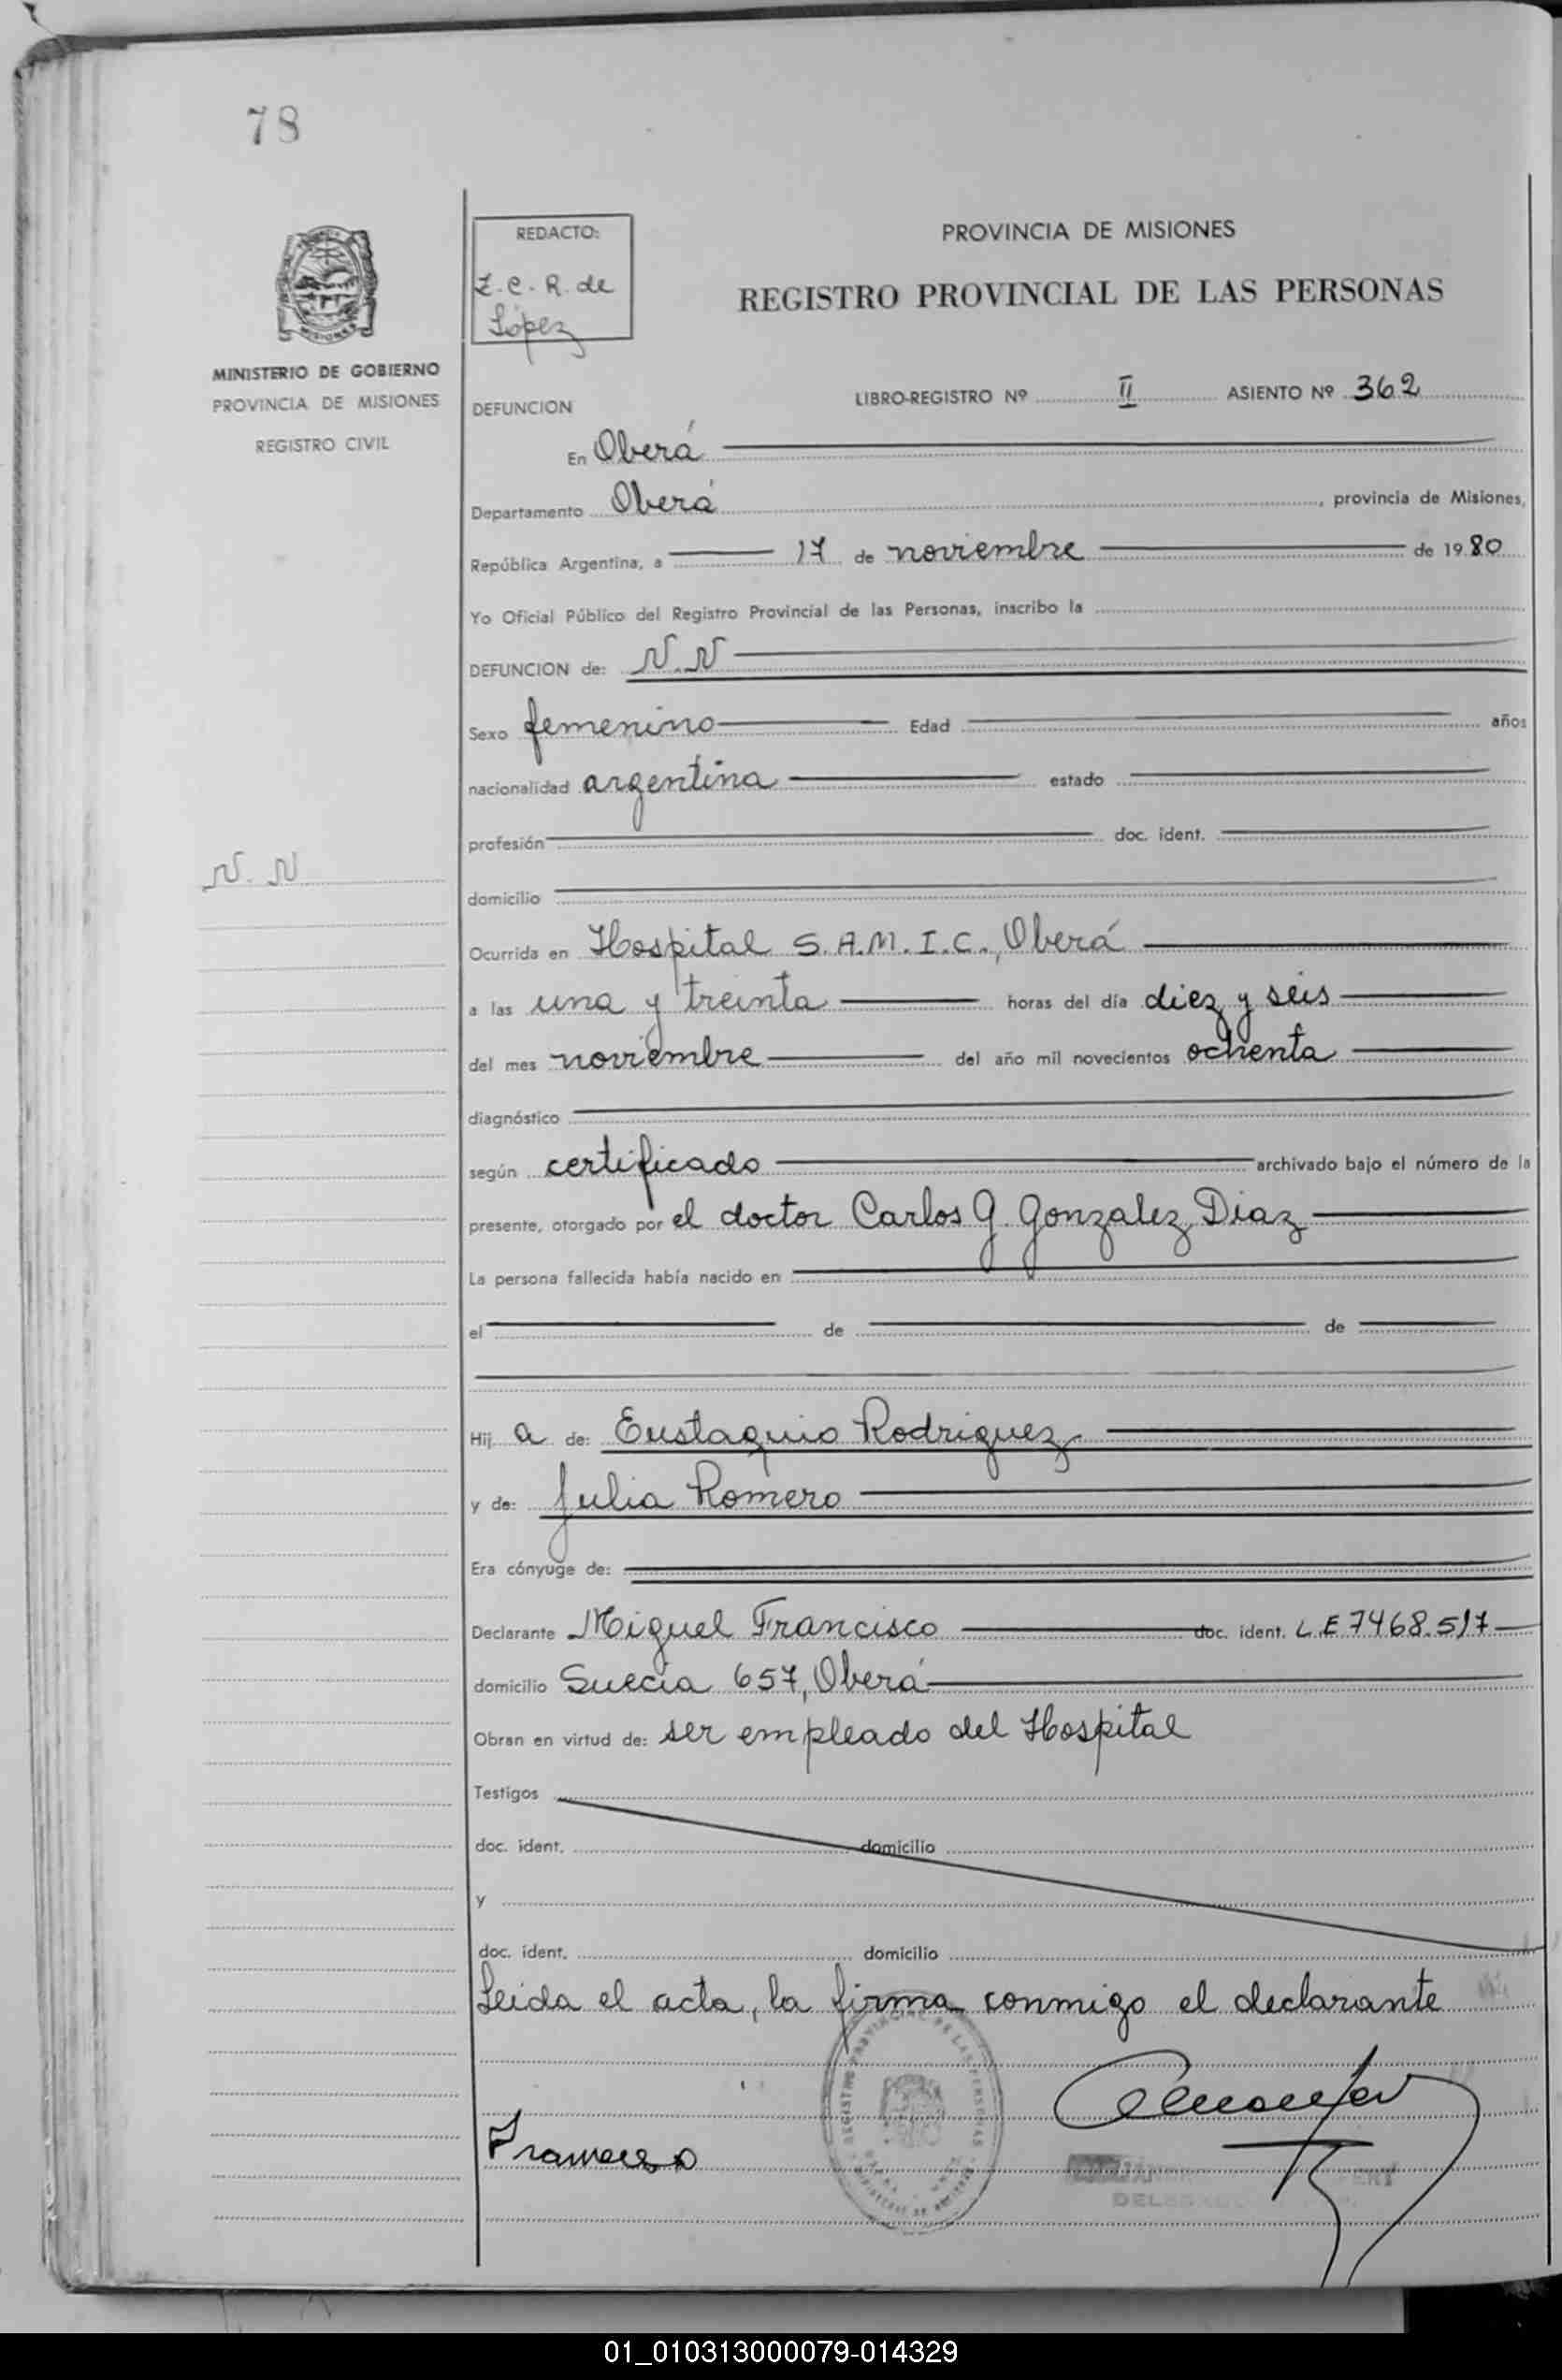 78
MISIONES
MINISTERIO DE GOBIERNO
PROVINCIA DE MISIONES
REGISTRO CIVIL
N. N
REDACTO:
Z. C. R. de
López
PROVINCIA DE MISIONES
REGISTRO PROVINCIAL DE LAS PERSONAS
LIBRO-REGISTRO Nº II ASIENTO Nº 362
DEFUNCION
En Oberá
Departamento Oberá, provincia de Misiones,
República Argentina, a 17 de noviembre de 1980
Yo Oficial Público del Registro Provincial de las Personas, inscribo la
DEFUNCION de: N.N
Sexo femenino Edad años
nacionalidad argentina estado
profesión doc. ident.
domicilio
Ocurrida en Hospital S.A.M.I.C., Oberá
a las una y treinta horas del día diez y seis
del mes noviembre del año mil novecientos ochenta
diagnóstico
según certificado archivado bajo el número de la
presente, otorgado por el doctor Carlos G. Gonzalez Diaz
La persona fallecida había nacido en
el de de
Hij a de: Eustaquio Rodriguez
y de: Julia Romero
Era cónyuge de:
Declarante Miguel Francisco doc. ident. L.E 7468.517
domicilio Suecia 657, Oberá
Obran en virtud de: ser empleado del Hospital
Testigos
doc. ident. domicilio
y
doc. ident. domicilio
Leida el acta, la firma conmigo el declarante
REGISTRO PROVINCIAL DE LAS PERSONAS
Francisco
01_010313000079-014329